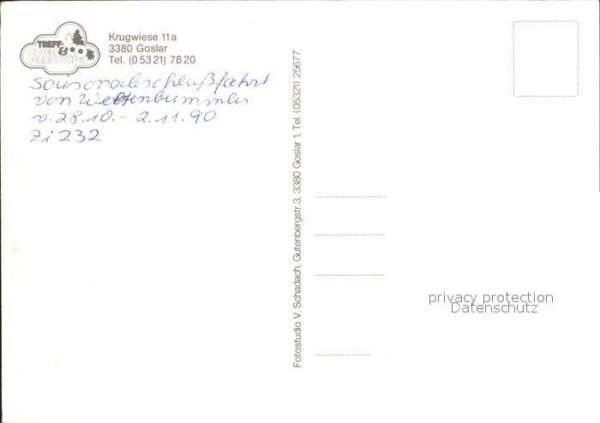 TREFF
&
Krugwiese 11a
3380 Goslar
Tel. (0 53 21) 78 20
Saisonabschlußfahrt
von Weltenbummler
v. 28.10. - 2.11.90
Zi 232
Fotostudio V. Schadach, Gutenbergstr. 3, 3380 Goslar 1, Tel. (05321) 25677
privacy protection
Datenschutz